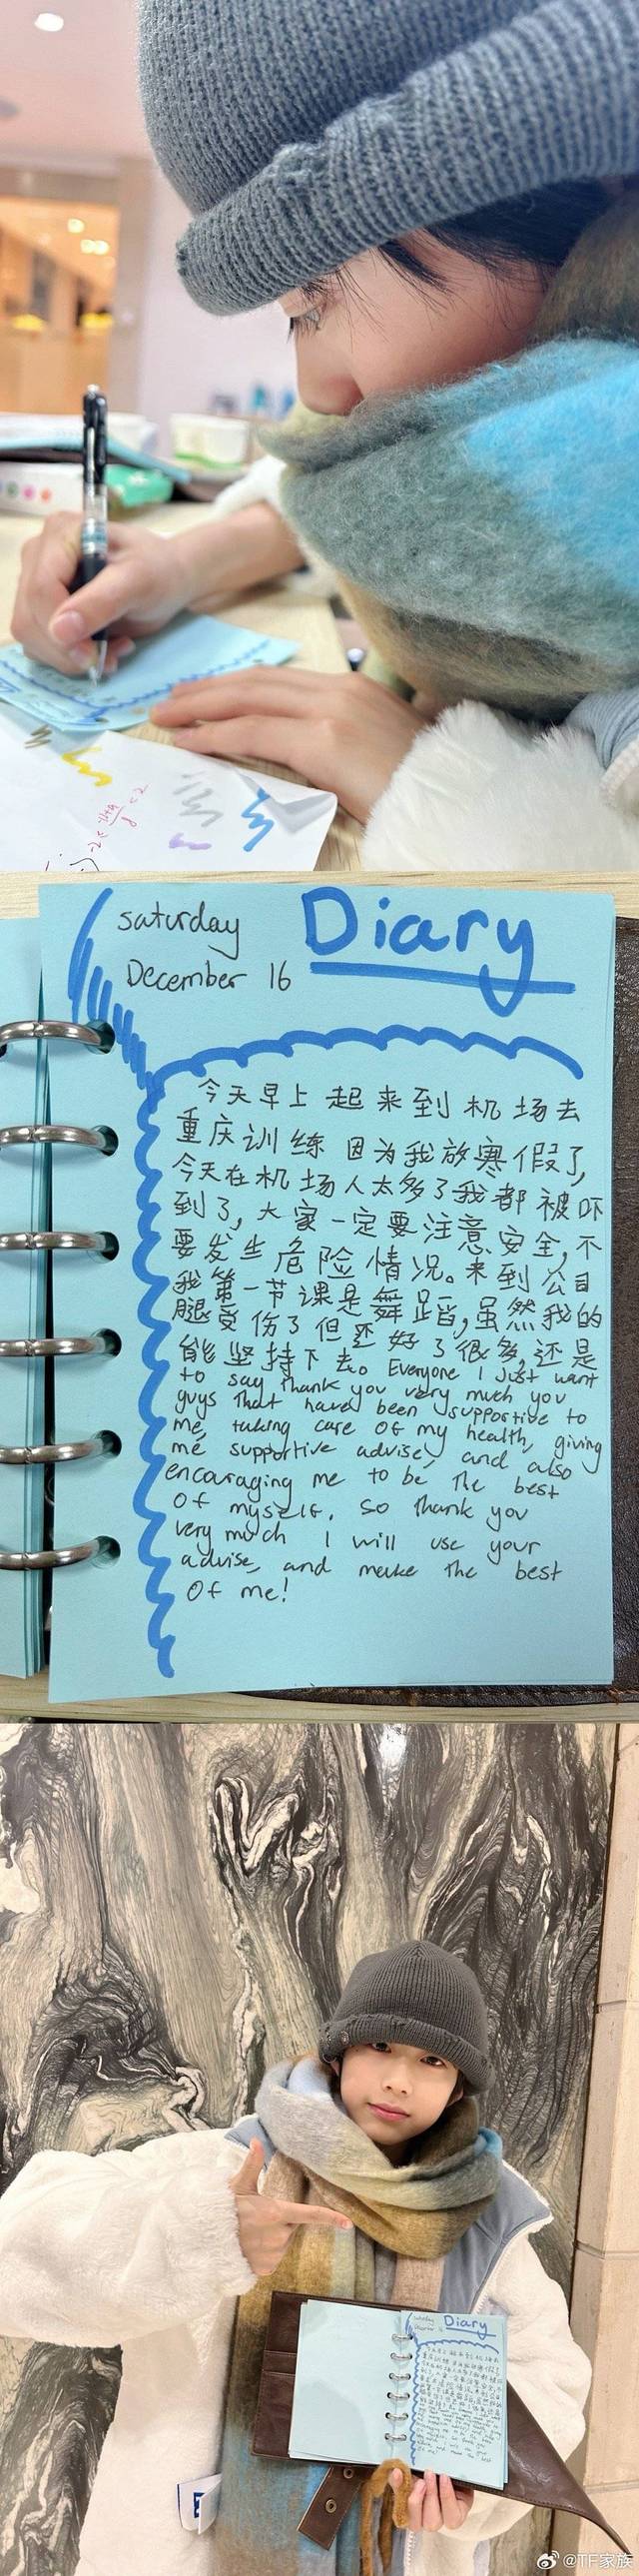 Saturday
December 16
Diary
今天早上起来到机场去
重庆训练因为我放寒假了,
今天在机场人太多了我都被吓
到了,大家一定要注意安全,不
要发生危险情况。来到公司
我第一节课是舞蹈,虽然我的
腿受伤了但还好了很多,还是
能坚持下去。Everyone I just want
to say thank you very much you
guys that have been supportive to
me, taking care of my health, giving
me supportive advise, and also
encouraging me to be the best
of myself. So thank you
very much I will use your
advise, and make the best
of me!
@TF家族